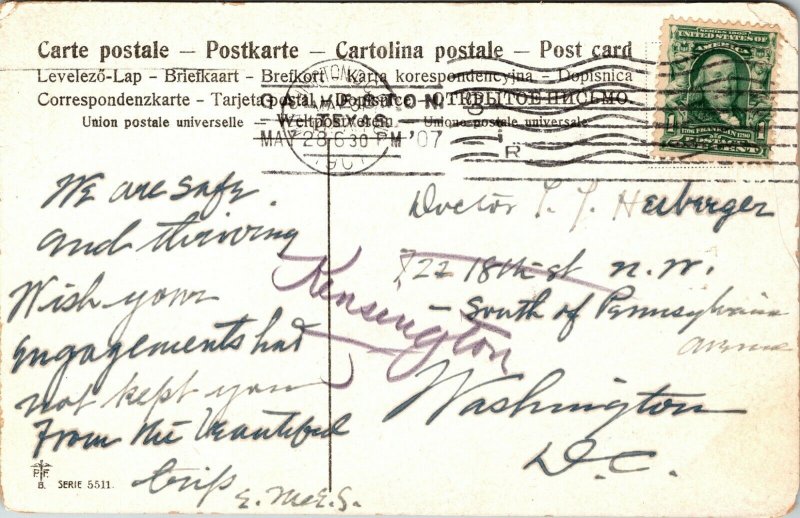 Carte postale — Postkarte — Cartolina postale — Post card
Levelező-Lap - Briefkaart - Brefkort - Karja korespondencyjna - Dopisnica
Correspondenzkarte - Tarjeta postal - Dopisnice - ОТКРЫТОЕ ПИСЬМО
Union postale universelle — Weltpostverein — Unione postale universale
GALVESTON
TEXAS
MAY 28 6 30 PM '07
1907
SERIES 1902
UNITED STATES OF
AMERICA
1706 FRANKLIN 1790
POSTAGE
1 ONE CENT 1
We are safe
and thriving
Wish your
engagements had
not kept you
From the beautiful
trip E. McE. S.
Doctor Heiberger
722 18th st n.w.
- South of Pennsylvania
avenue
Washington
D.C.
Kensington
P.F.
B. SERIE 5511.